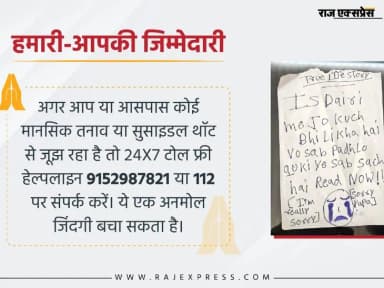 राज एक्सप्रेस
हमारी-आपकी जिम्मेदारी
अगर आप या आसपास कोई
मानसिक तनाव या सुसाइडल थॉट
से जूझ रहा है तो 24X7 टोल फ्री
हेल्पलाइन 9152987821 या 112
पर संपर्क करें। ये एक अनमोल
जिंदगी बचा सकता है।
True
story
Is Dairi
me Jo kuch
Bhi Likha hai
Vo sab Padhlo
Vo sab sach
hai Read Now!!
I'm
really
sorry
sorry
papa
WWW.RAJEXPRESS.COM